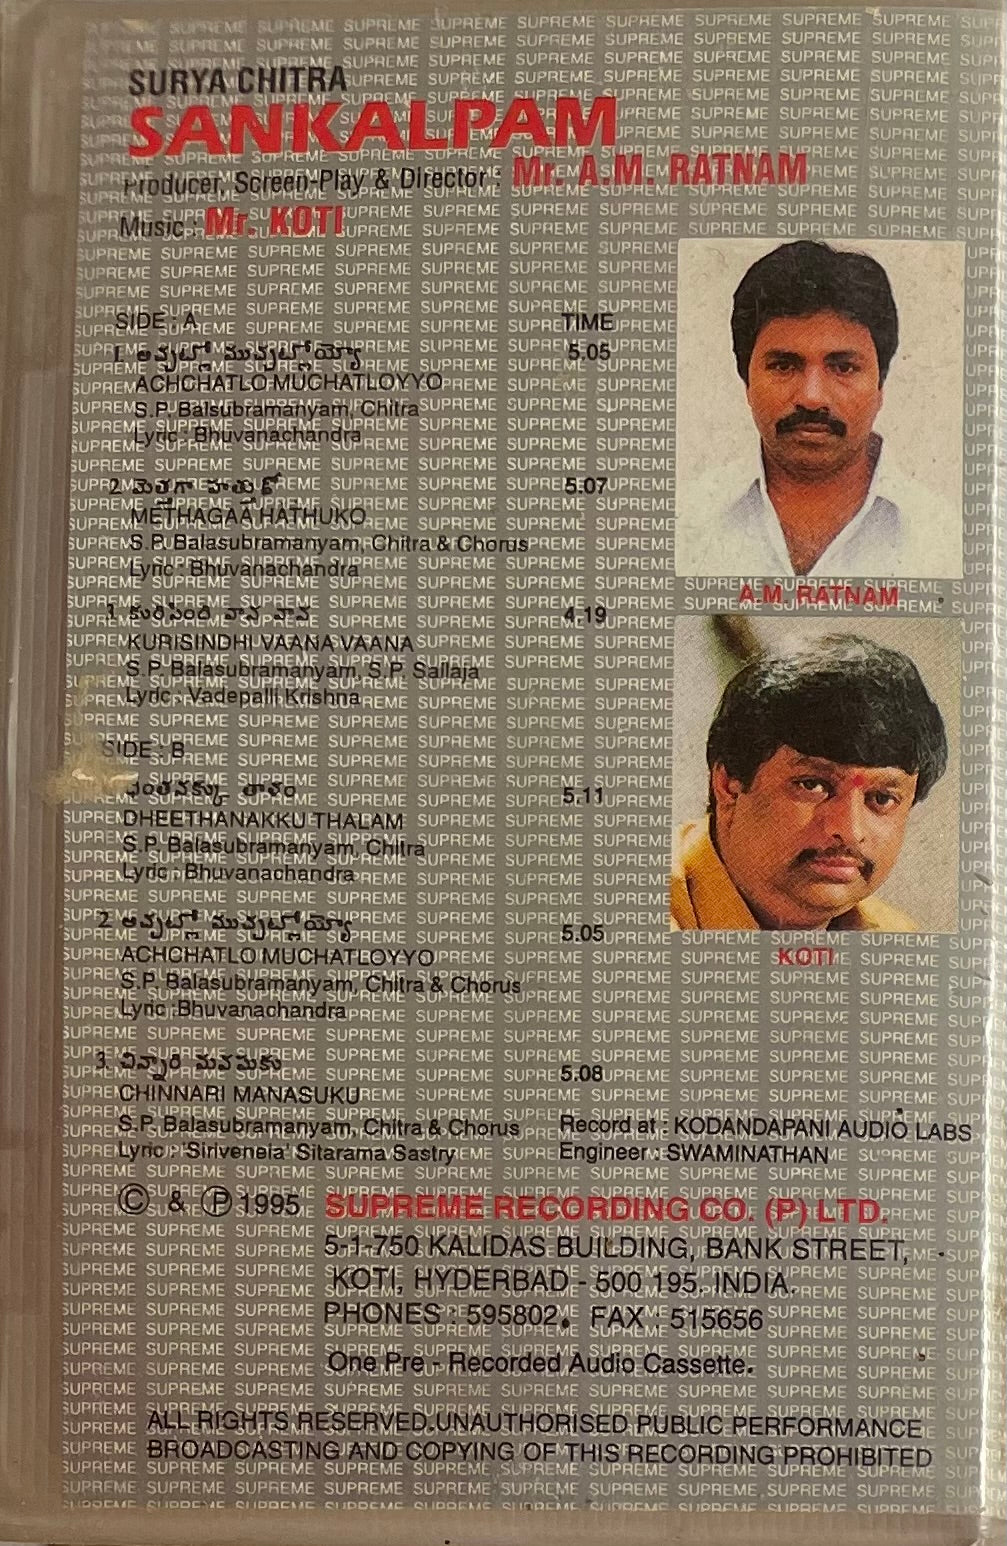 SURYA CHITRA
SANKALPAM
Producer, Screen-Play & Director : Mr. A.M. RATNAM
Music : Mr. KOTI
SIDE : A TIME
1. అచ్చట్లో ముచ్చట్లోయ్యో 5.05
ACHCHATLO MUCHATLOYYO
S.P. Balsubramanyam, Chitra
Lyric : Bhuvanachandra
2. మెత్తగా హత్తుకో 5.07
METHAGAA HATHUKO
S.P. Balasubramanyam, Chitra & Chorus
Lyric : Bhuvanachandra
3. కురిసింది వాన వాన 4.19
KURISINDHI VAANA VAANA
S.P. Balasubramanyam, S.P. Sailaja
Lyric : Vadepalli Krishna
A.M. RATNAM
SIDE : B
తాళం 5.11
DHEETHANAKKU THALAM
S.P. Balasubramanyam, Chitra
Lyric : Bhuvanachandra
2. అచ్చట్లో ముచ్చట్లోయ్యో 5.05
ACHCHATLO MUCHATLOYYO
S.P. Balasubramanyam, Chitra & Chorus
Lyric :Bhuvanachandra
KOTI
3. చిన్నారి మనసుకు 5.08
CHINNARI MANASUKU
S.P. Balasubramanyam, Chitra & Chorus
Lyric : 'Sirivenela' Sitarama Sastry
Record at : KODANDAPANI AUDIO LABS
Engineer : SWAMINATHAN
© & ℗ 1995 SUPREME RECORDING CO. (P) LTD.
5-1-750 KALIDAS BUILDING, BANK STREET,
KOTI, HYDERBAD - 500 195. INDIA.
PHONES : 595802. FAX : 515656
One Pre - Recorded Audio Cassette.
ALL RIGHTS RESERVED.UNAUTHORISED PUBLIC PERFORMANCE
BROADCASTING AND COPYING OF THIS RECORDING PROHIBITED